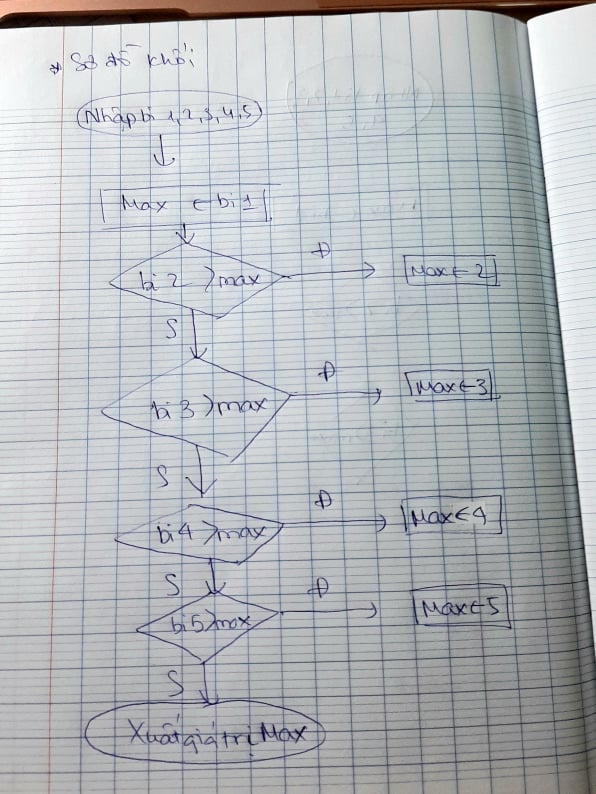 * Sơ đồ khối
Nhập bi 1,2,3,4,5
Max ← bi 1
bi 2 > max
Đ
Max ← 2
S
bi 3 > max
Đ
Max ← 3
S
bi 4 > max
Đ
Max ← 4
S
bi 5 > max
Đ
Max ← 5
S
Xuất giá trị Max